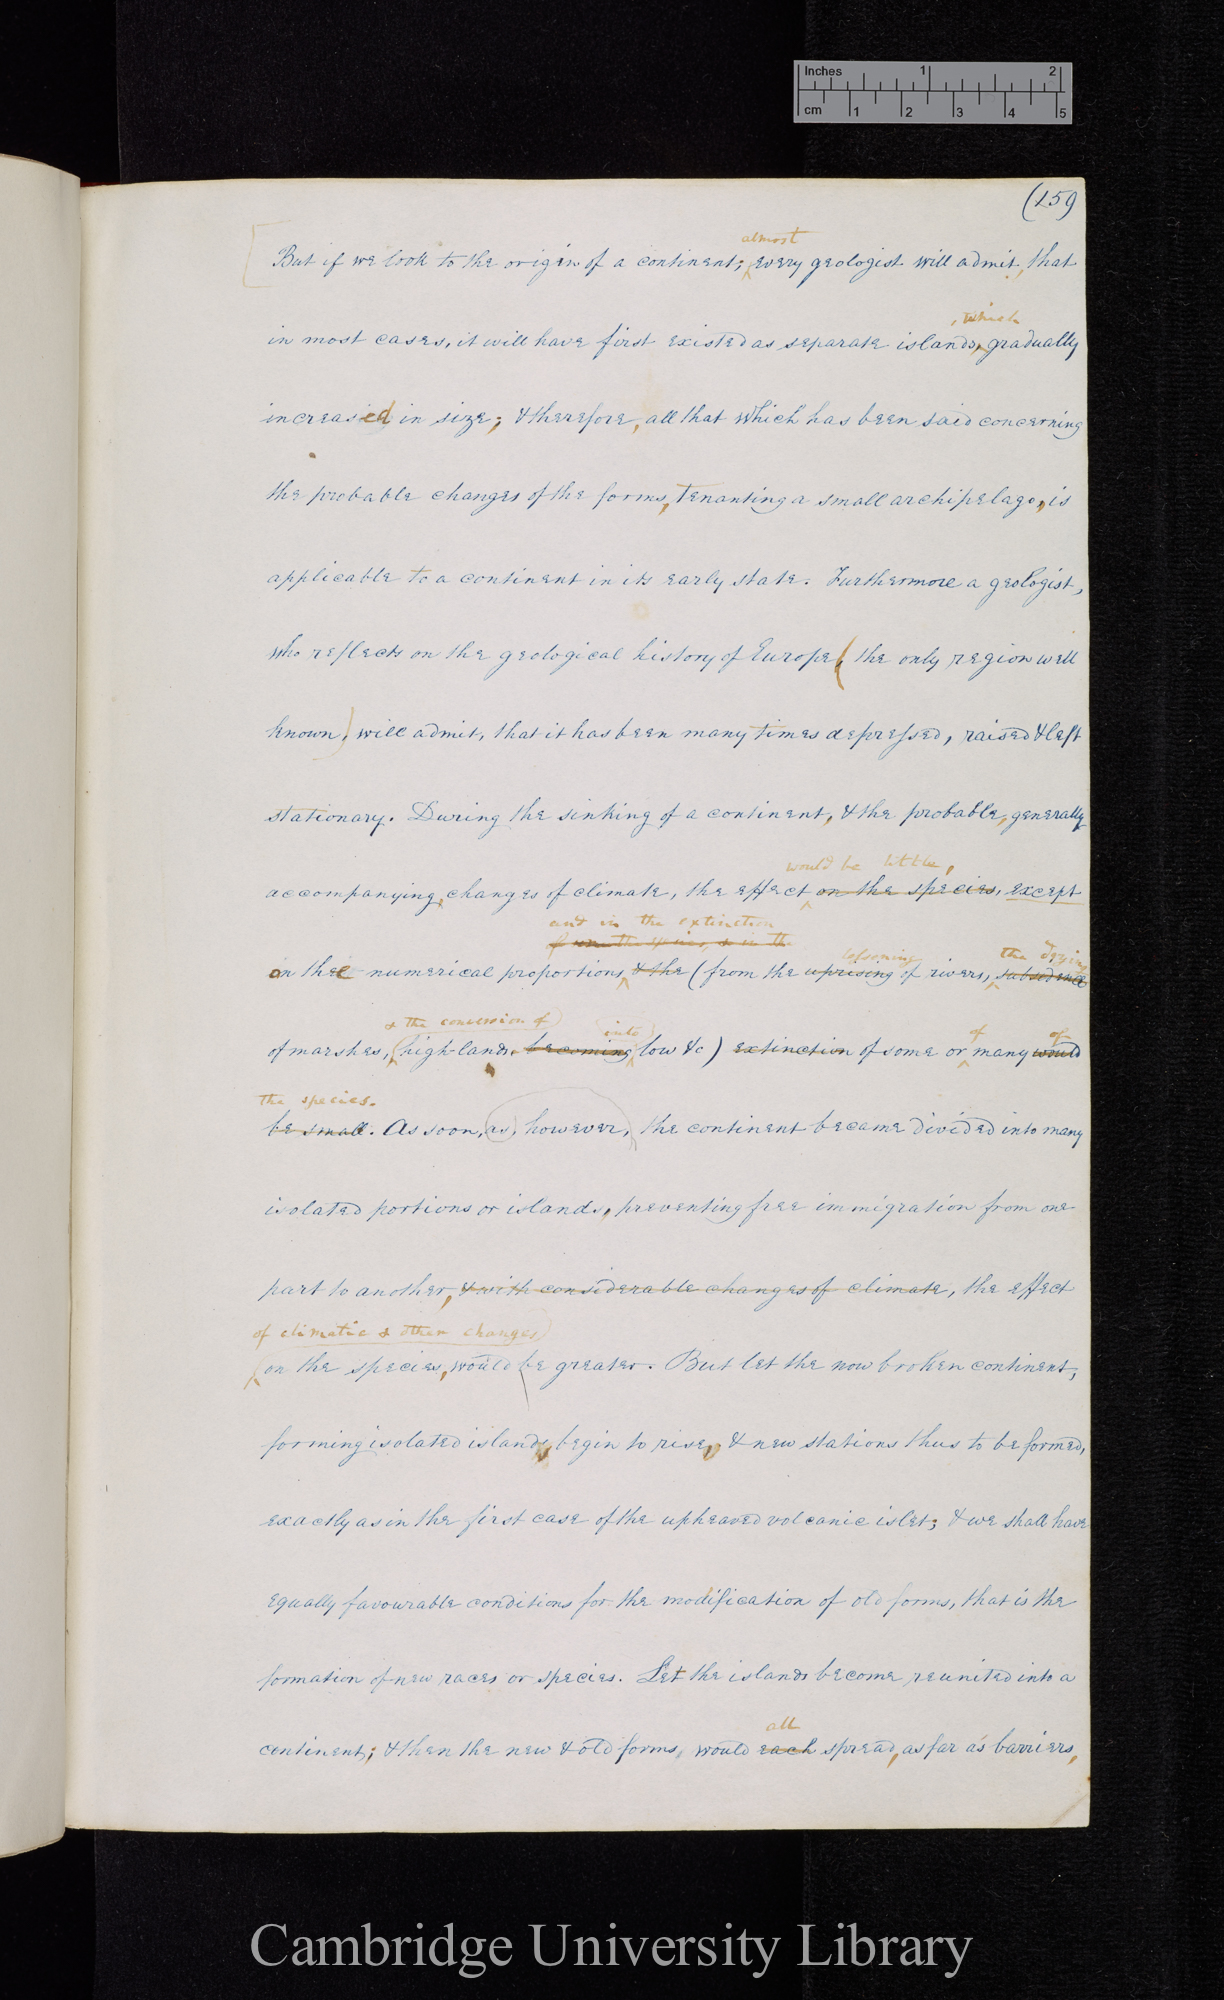 Inches 1 2
cm 1 2 3 4 5
(159
almost
But if we look to the origin of a continent; every geologist will admit, that
, which
in most cases, it will have first existed as separate islands, gradually
increased in size; & therefore, all that which has been said concerning
the probable changes of the forms, tenanting a small archipelago, is
applicable to a continent in its early state. Furthermore a geologist,
who reflects on the geological history of Europe, (the only region well
known) will admit, that it has been many times depressed, raised & left
stationary. During the sinking of a continent, & the probable, generally
would be little,
accompanying, changes of climate, the effect on the species, except
and in the extinction
lessening the drying
in the numerical proportions, & the (from the uprising of rivers, subsidence
& the conversion of) (into) of of
of marshes, (high-lands, becoming low &c) extinction of some or many would
the species.
be small. As soon, as, however, the continent became divided into many
isolated portions or islands, preventing free immigration from one
part to another, & with considerable changes of climate, the effect
of climatic & other changes)
(on the species, would be greater. But let the now broken continent,
forming isolated islands, begin to rise, & new stations thus to be formed,
exactly as in the first case of the upheaved volcanic islet; & we shall have
equally favourable conditions for the modification of old forms, that is the
formation of new races or species. Let the islands become reunited into a
all
continent; & then the new & old forms, would each spread, as far as barriers,
Cambridge University Library